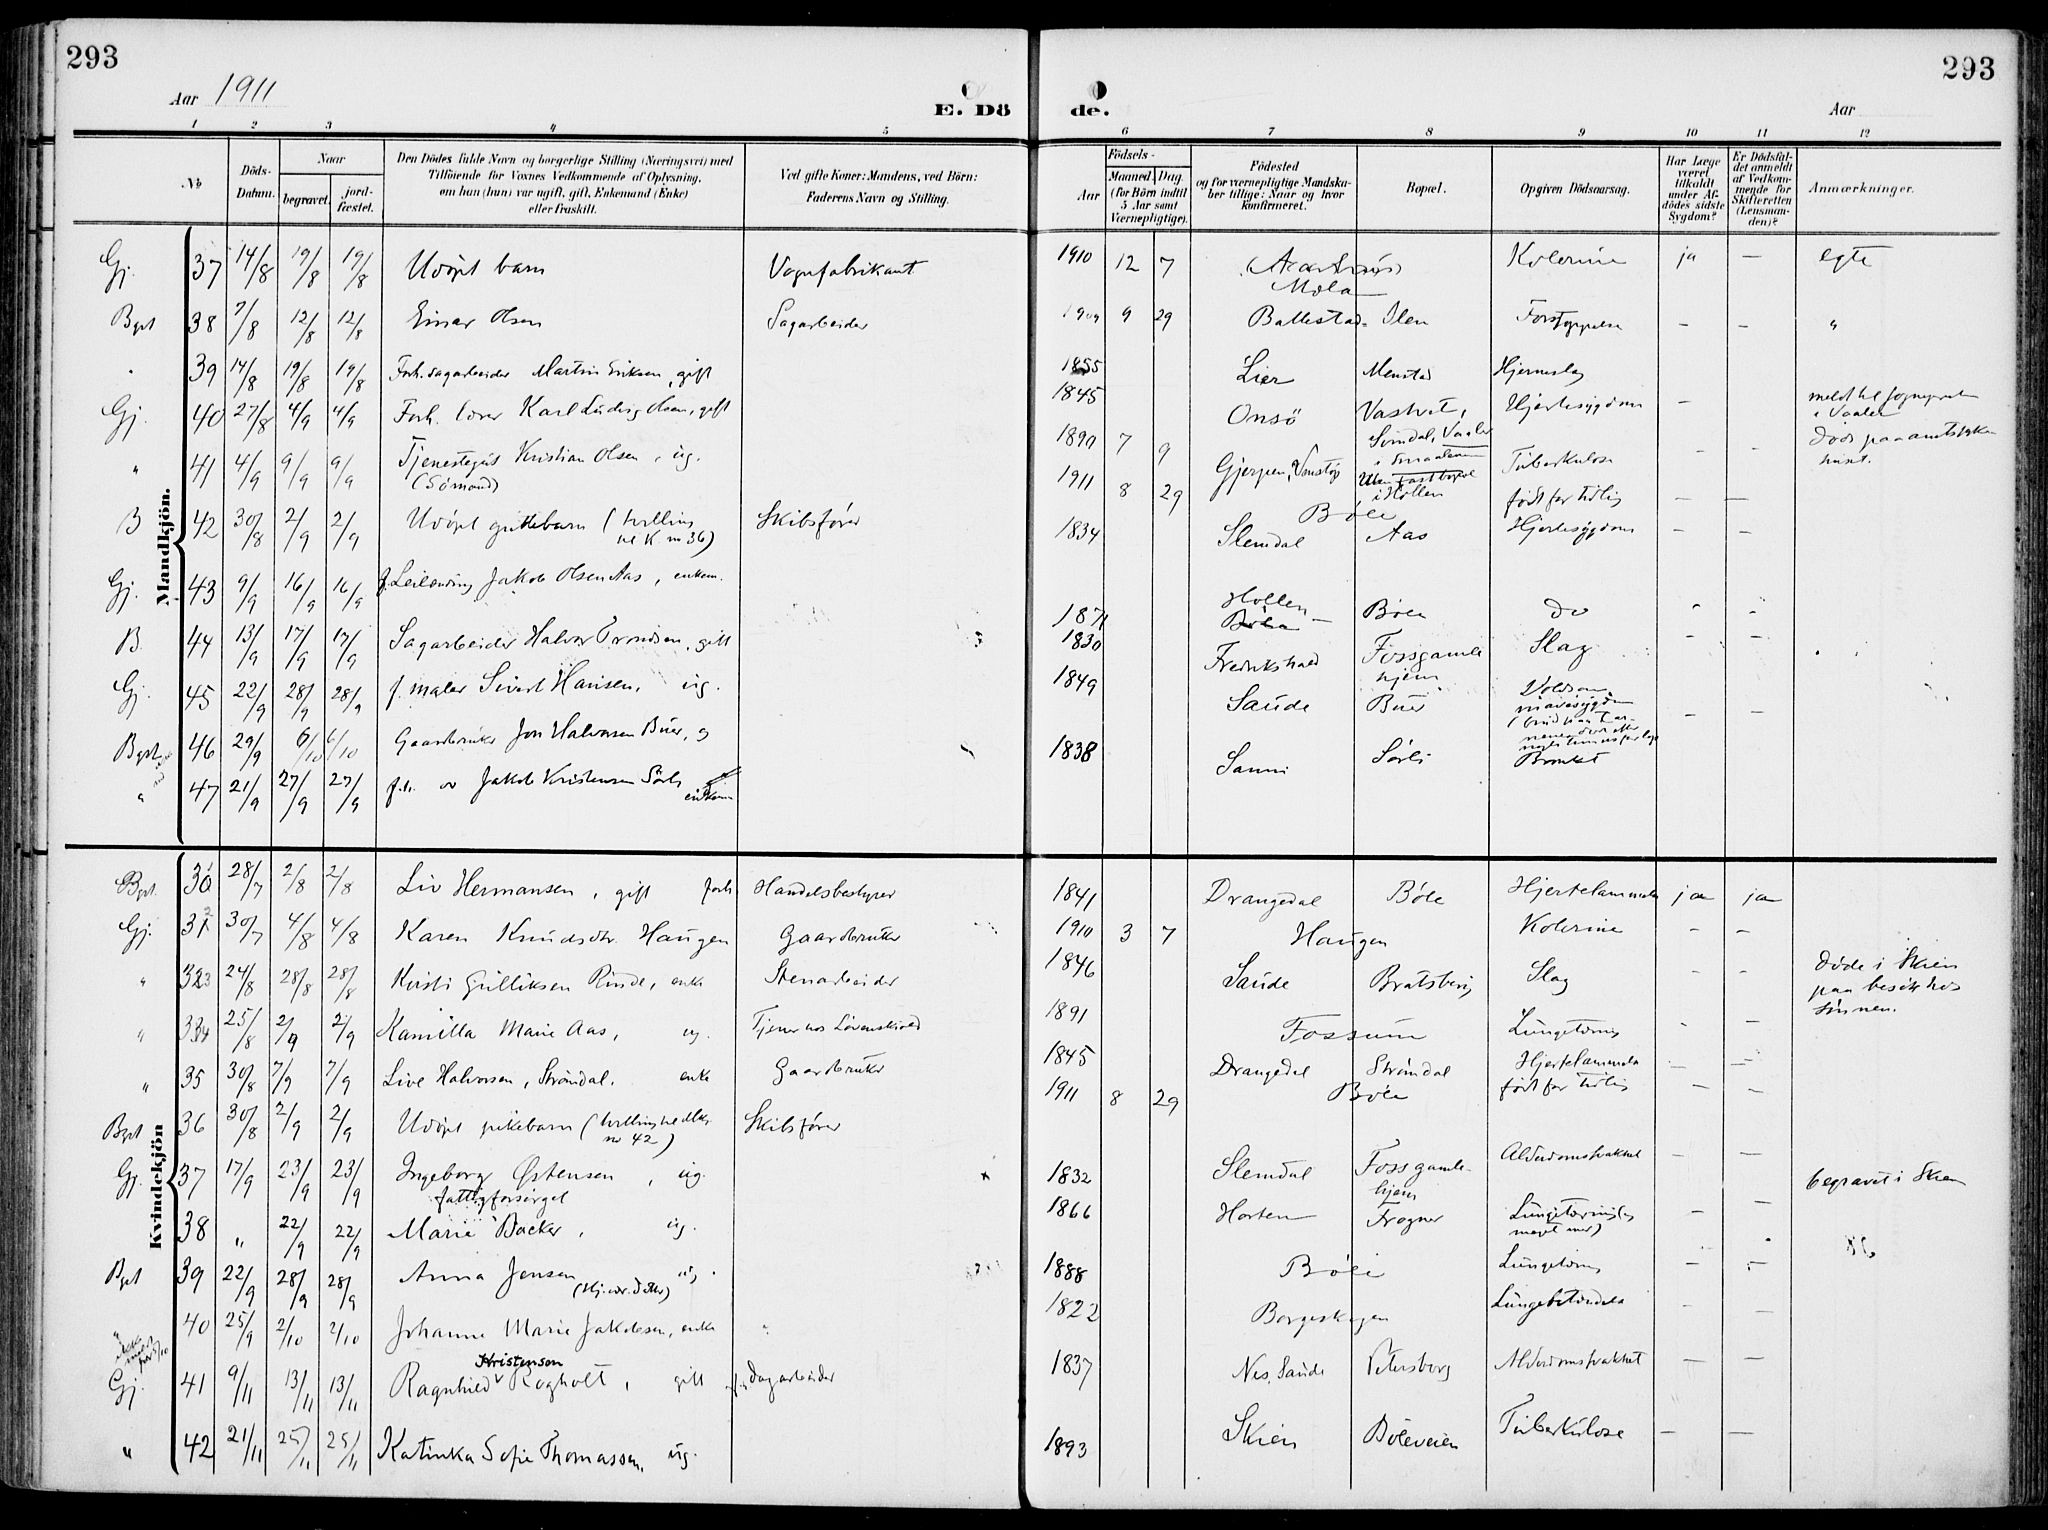 293
293
Aar 1911
E. Dö de.
Aar
1 2 3 4 5 6 7 8 9 10 11 12
No
Döds-Datum.
Naar
begravet.
jord-fæstet.
Den Dödes fulde Navn og borgerlige Stilling (Næringsvei) med
Tilföiende for Voxnes Vedkommende af Oplysning.
om han (hun) var ugift, gift, Enkemand (Enke)
eller fraskilt.
Ved gifte Koner: Mandens, ved Börn:
Faderens Navn og Stilling.
Födsels-
Aar
Maaned. Dag.
(for Börn indtil
5 Aar samt
Værnepligtige).
Födested
og for værnepligtige Mandska-
ber tillige: Naar og hvor
konfirmeret.
Bopæl.
Opgiven Dödsaarsag.
Har Læge
været
tilkaldt
under Af-
dödes sidste
Sygdom?
Er Dödsfal-
det anmeldt
af Vedkom-
mende for
Skifteretten
(Lensman-
den)?
Anmærkninger.
Mandkjön.
Gj. 37 14/8 19/8 19/8 Udöpt barn Vognfabrikant 1910 12 7 Mæla Kolerine ja — egte
Bgst 38 7/8 12/8 12/8 Einar Olsen Sagarbeider 1909 9 29 Ballestad Ilen Forstoppelse — — "
39 14/8 19/8 19/8 Forh. sagarbeider Martin Eriksen, gift 1855 Lier Menstad Hjerneslag
Gj. 40 27/8 4/9 4/9 Forh. lærer Karl Ludvig Olsen, gift 1845 Onsö Hjertesygdom —
" 41 4/9 9/9 9/9 Tjenestegut Kristian Olsen, ug. (Sömand) 1890 7 9 Gjerpen, i Hollen Tuberkulose — — Död paa amtssyke
huset.
B 42 30/8 2/9 2/9 Udöpt guttebarn (tvilling til K. nr 36) Skibsförer 1911 8 29 Böle født for tidlig — —
Gj. 43 9/9 16/9 16/9 f. Leilending Jakob Olsen Aas, enkem. 1834 Slemdal Aas Hjertesygdom —
B. 44 13/9 17/9 17/9 Sagarbeider Halvor Trondsen, gift 1871 Hollen Böle do
Gj. 45 22/9 28/9 28/9 f. maler Sivert Hansen, ug. 1830 Fredrikshald Fossgamle
hjem Slag
Bgst 46 29/9 6/10 6/10 Gaardbruker Jon Halvorsen Buer, g 1849 Saude Buer — —
" 47 21/9 27/9 27/9 Jakob Kristensen Sörli enkem 1838 Sanni Sörli Bronkit
Kvindekjön
Bgst. 30 28/7 2/8 2/8 Liv Hermansen, gift forh. Handelsbestyrer 1841 Drangedal Böle Hjertelammelse ja ja
Gj. 31 30/7 4/8 4/8 Karen Knudsdtr. Haugen Gaardbruker 1910 3 7 Haugen Kolerine — —
" 33 24/8 28/8 28/8 Kirsti Gulliksen Rinde, enke Stenarbeider 1846 Saude Bratsberg Slag — — døde i Skien
paa besök hos
sönnen.
" 34 25/8 2/9 2/9 Kamilla Marie Aas, ug. Tjener hos Lövenskiold 1891 Fossum Lungetæring — —
" 35 30/8 7/9 7/9 Live Halvorsen, Strömdal, enke Gaardbruker 1845 Drangedal Strömdal Hjertelammelse — —
Bgst 36 30/8 2/9 2/9 Udöpt pikebarn (tvilling til Mkj. nr 42) Skibsförer 1911 8 29 Böle født for tidlig — —
Gj. 37 17/9 23/9 23/9 Ingeborg Östensen, ug. 1832 Slemdal Fossgamle-
hjem Alderdomssvakhet — —
fattigforsörget
38 " 22/9 22/9 Marie Backer, ug. 1866 Horten Frogner Lungetæring — — begravet i Skien
Bgst 39 22/9 28/9 28/9 Anna Jensen ug. 1888 Böle Lungetæring — —
" 40 25/9 2/10 2/10 Johanne Marie Jakobsen, enke " 1822 Borgeskogen Lungebetændelse — —
Gj. 41 9/11 13/11 13/11 Ragnhild Kristensen Rogholt, gift Dagarbeider 1837 Nes, Saude Petersborg Alderdomssvakhet — —
" 42 21/11 25/11 25/11 Katinka Sofie Thomassen, ug. 1893 Skien Böleveien Tuberkulose — —